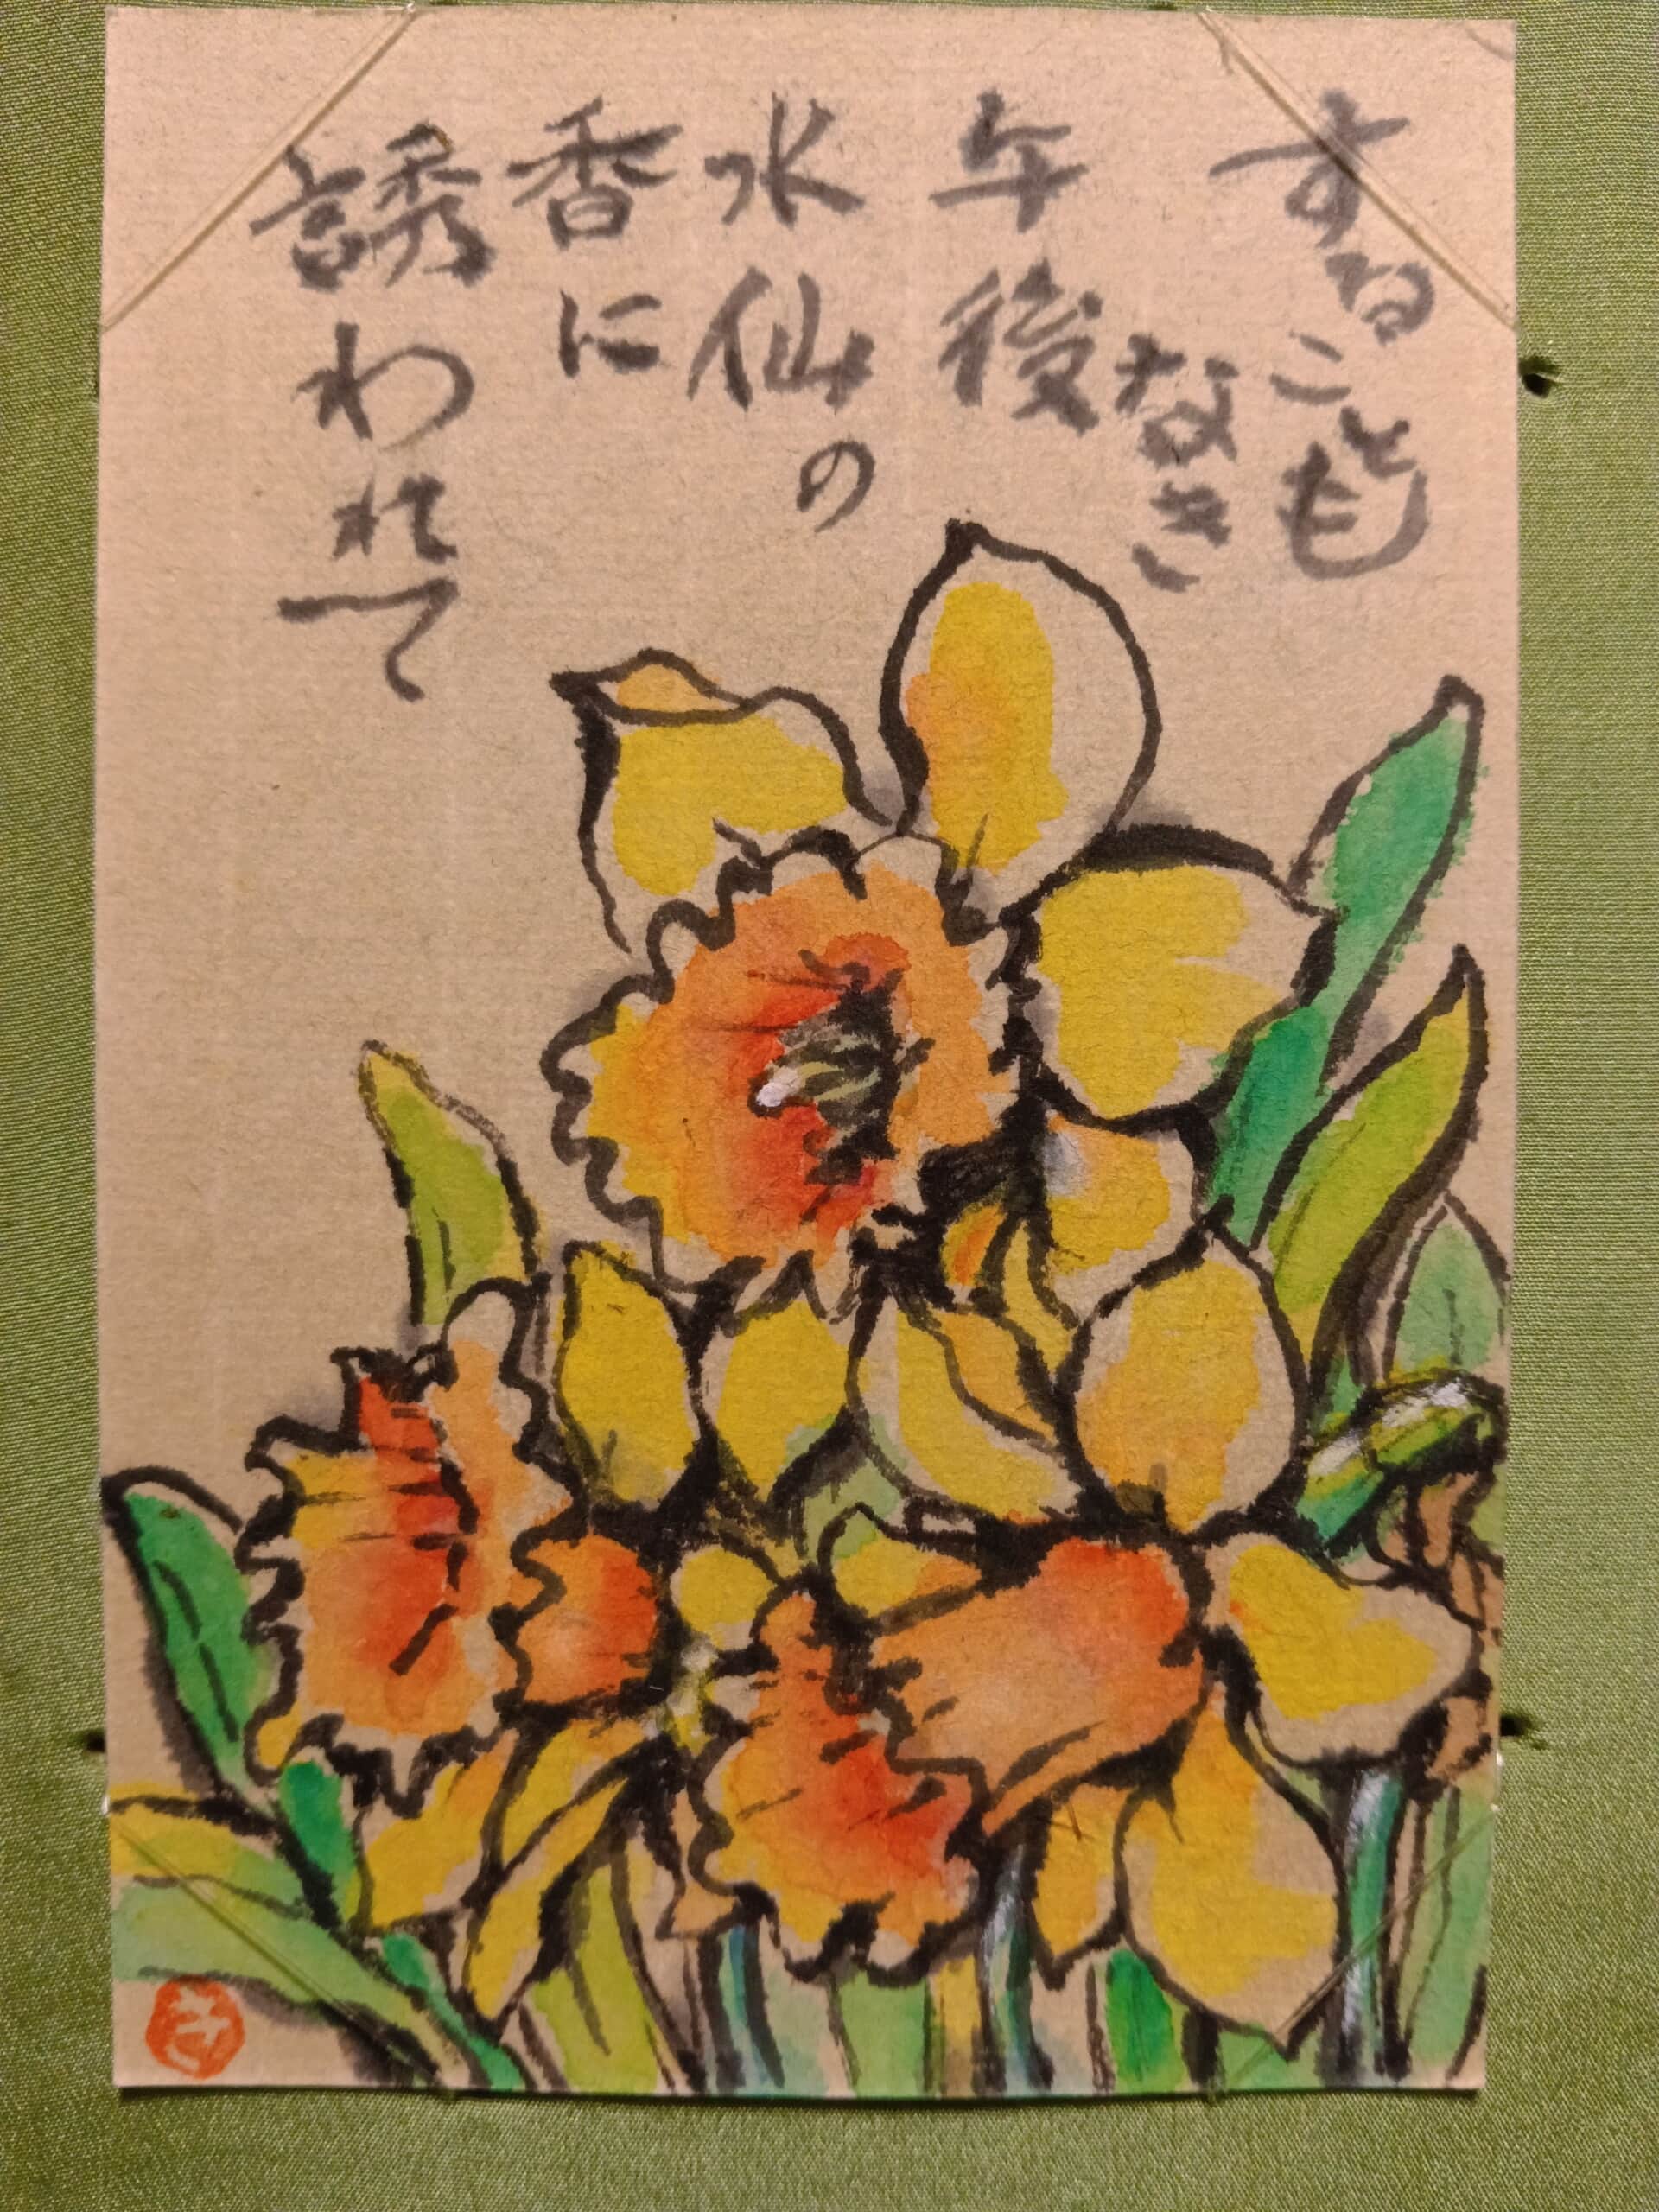 することも
なき
午後
水仙の
香に
誘われて
き